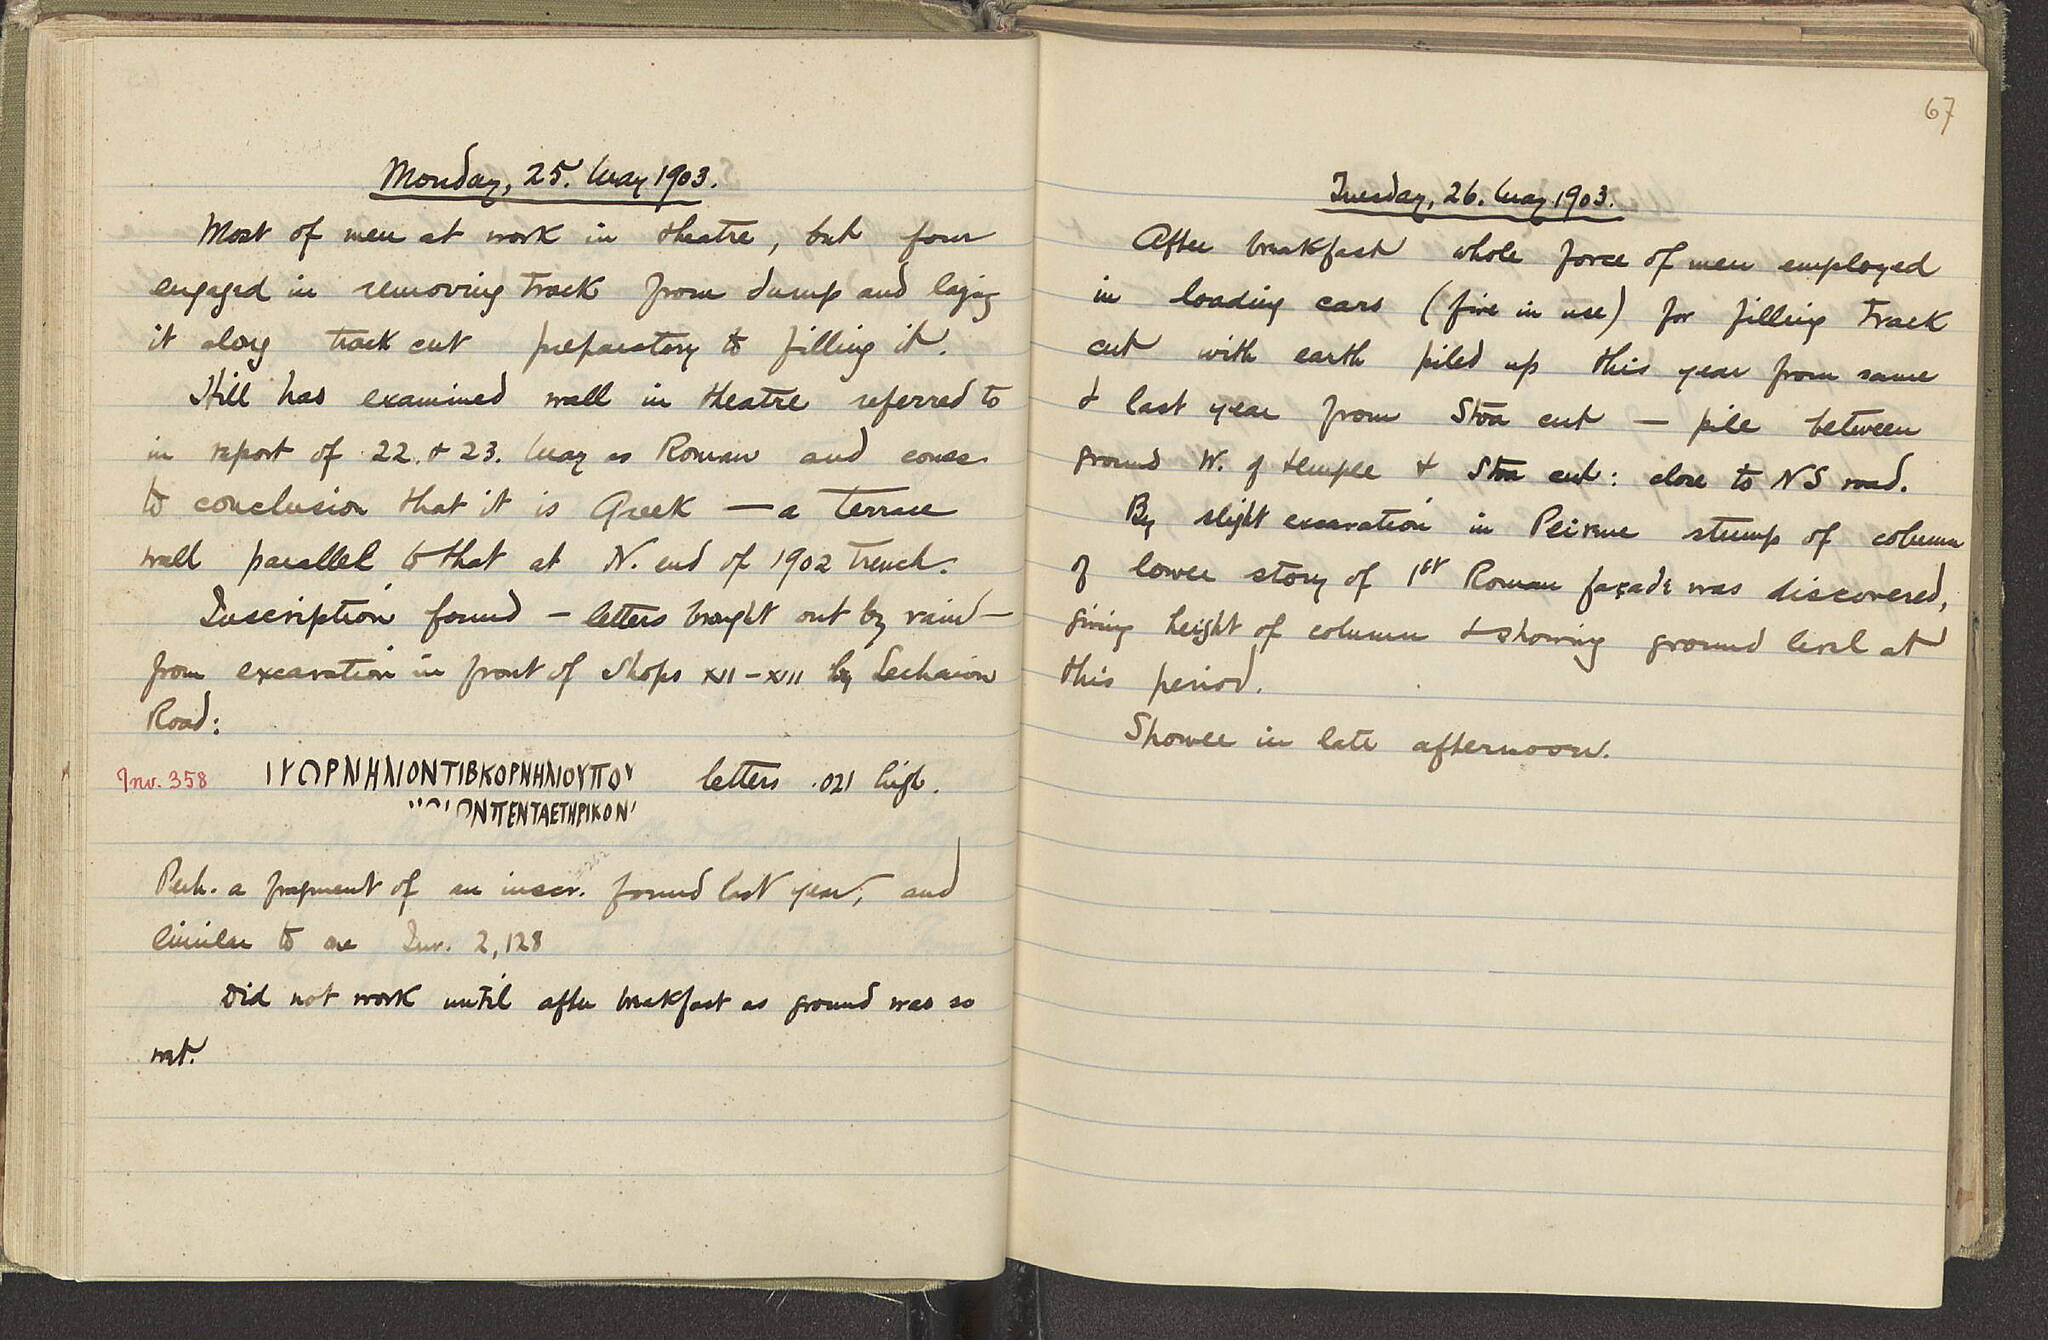 Monday, 25. May 1903.
Most of men at work in theatre, but four
engaged in removing track from dump and laying
it along track cut preparatory to filling it.
Hill has examined wall in theatre referred to
in report of 22. & 23. May as Roman and comes
to conclusion that it is Greek — a terrace
wall parallel to that at N. end of 1902 trench.
Inscription found – letters brought out by rain –
from excavation in front of shops XII – XIII by Lechaion
Road:
Inv. 358 ΟΡΝΗΛΙΟΝΤΙΒΚΟΡΝΗΛΙΟΥΠΟ letters .021 high.
ΟΝΠΕΝΤΑΕΤΗΡΙΚΟΝ
Perh. a fragment of an inscr. found last year, and
similar to one Inv. 2,128
Did not work until after breakfast as ground was so
wet.
67
Tuesday, 26. May 1903.
After breakfast whole force of men employed
in loading cars (five in use) for filling track
cut with earth piled up this year from same
& last year from Stoa cut — pile between
ground W. of temple & Stoa cut: close to NS road.
By slight excavation in Peirene stump of column
of lower story of 1st Roman façade was discovered,
giving height of column & showing ground level at
this period.
Shower in late afternoon.